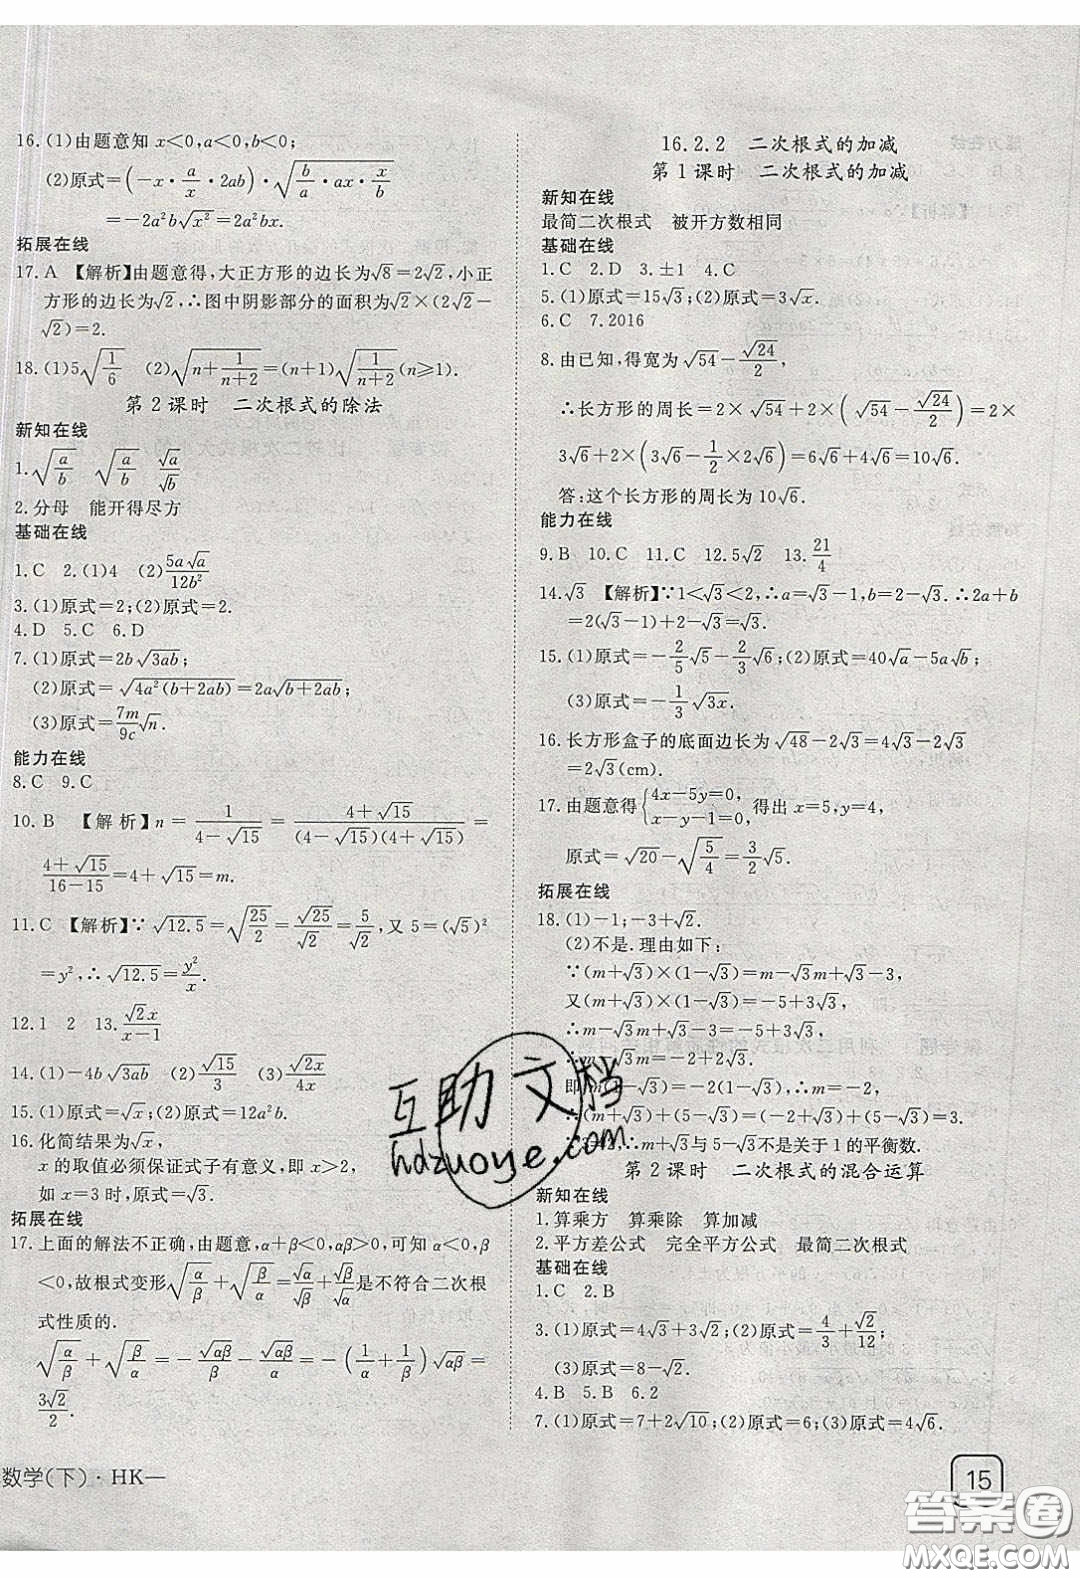 16.(1)由题意知 x<0,a<0,b<0;
(2)原式=(-x·a/x·2ab)·√(b/a·ax·x/b)
=-2a²b√x²=2a²bx.
拓展在线
17.A 【解析】由题意得,大正方形的边长为√8=2√2,小正
方形的边长为√2,∴图中阴影部分的面积为√2×(2√2-
√2)=2.
18.(1)5√(1/6) (2)√(n+1/(n+2))=(n+1)√(1/(n+2))(n≥1).
第2课时 二次根式的除法
新知在线
1.√(a/b) √(a/b) √a/√b
2.分母 能开得尽方
基础在线
1.C 2.(1)4 (2)5a√a/12b²
3.(1)原式=2;(2)原式=2.
4.D 5.C 6.D
7.(1)原式=2b√3ab;
(2)原式=√(4a²(b+2ab))=2a√(b+2ab);
(3)原式=7m/9c √n.
能力在线
8.C 9.C
10.B 【解析】n=1/(4-√15)=(4+√15)/((4-√15)(4+√15))=
(4+√15)/(16-15)=4+√15=m.
11.C 【解析】∵√12.5=√(25/2)=√25/√2=5/√2,又 5=(√5)²
=y²,∴√12.5=y²/x.
12.1 2 13.√2x/(x-1)
14.(1)-4b√3ab (2)√15/3 (3)√30x/4x
15.(1)原式=√x;(2)原式=12a²b.
16.化简结果为√x,
x 的取值必须保证式子有意义,即 x>2,
如 x=3 时,原式=√3.
拓展在线
17.上面的解法不正确,由题意,α+β<0,αβ>0,可知 α<0,β
<0,故根式变形√(α/β)+√(β/α)=√α/√β+√β/√α是不符合二次根
式性质的.
√(α/β)+√(β/α)=-√αβ/β-√αβ/α=-(1/α+1/β)√αβ=
3√2/2.
数学(下)·HK—
16.2.2 二次根式的加减
第1课时 二次根式的加减
新知在线
最简二次根式 被开方数相同
基础在线
1.C 2.D 3.±1 4.C
5.(1)原式=15√3;(2)原式=3√x.
6.C 7.2016
8.由已知,得宽为√54-√24/2,
∴长方形的周长=2×√54+2×(√54-√24/2)=2×
3√6+2×(3√6-1/2×2√6)=6√6+4√6=10√6.
答:这个长方形的周长为10√6.
能力在线
9.B 10.C 11.C 12.5√2 13.21/4
14.√3 【解析】∵1<√3<2,∴a=√3-1,b=2-√3.∴2a+b
=2(√3-1)+2-√3=√3.
15.(1)原式=-2/5√5-2/3√6;(2)原式=40√a-5a√b;
(3)原式=-1/3√3x.
16.长方形盒子的底面边长为√48-2√3=4√3-2√3=
2√3(cm).
17.由题意得{4x-5y=0, x-y-1=0,得出 x=5,y=4,
原式=√20-√(5/4)=3/2√5.
拓展在线
18.(1)-1;-3+√2.
(2)不是.理由如下:
∵(m+√3)×(1-√3)=m-√3m+√3-3,
又(m+√3)×(1-√3)=-5+3√3,
∴m-√3m+√3-3=-5+3√3,
∴m-√3m=-2+2√3.
即 m(1-√3)=-2(1-√3),∴m=-2,
∴(m+√3)+(5-√3)=(-2+√3)+(5-√3)=3.
∵3≠2,∴m+√3与5-√3不是关于1的平衡数.
第2课时 二次根式的混合运算
新知在线
1.算乘方 算乘除 算加减
2.平方差公式 完全平方公式 最简二次根式
基础在线
1.C 2.B
3.(1)原式=4√3+3√2;(2)原式=4/3+√2/12;
(3)原式=8-√3.
4.B 5.B 6.2
7.(1)原式=7+2√10;(2)原式=6;(3)原式=4√6.
15
互助文档
hdzuoye.com
答案圈
MXQE.COM